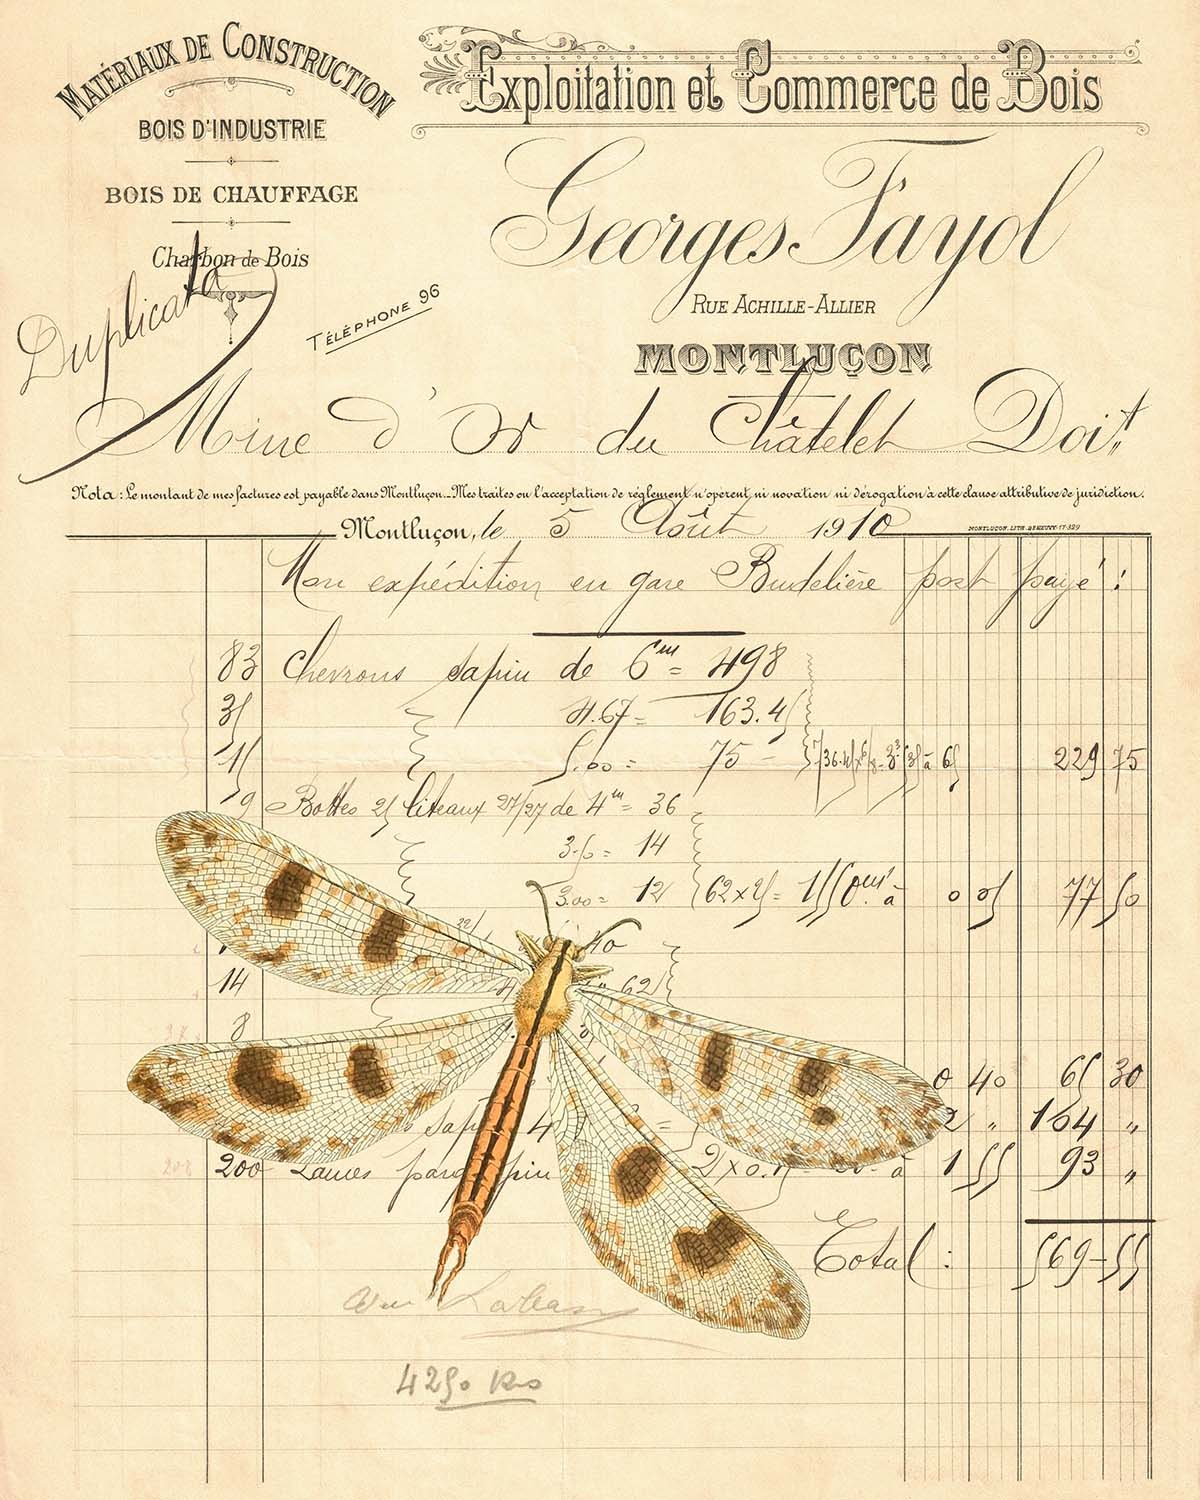 MATÉRIAUX DE CONSTRUCTION
BOIS D'INDUSTRIE
BOIS DE CHAUFFAGE
Charbon de Bois
Duplicata
TÉLÉPHONE 96
Exploitation et Commerce de Bois
Georges Fayol
RUE ACHILLE-ALLIER
MONTLUÇON
Mine d'Or du Châtelet Doit
Nota : Le montant de mes factures est payable dans Montluçon._Mes traites ou l'acceptation de réglement n'opèrent ni novation ni dérogation à cette clause attributive de juridiction.
Montluçon, le 5 Août 1910
Mon expédition en gare Budelière port payé :
83 Chevrons sapin de 6m = 498
35 4.67 = 163.45
15 5.00 = 75 - à 65 229 75
9 Bottes 25 liteaux 27/27 de 4m = 36
3.50 = 14
3.00 = 12 62 x 25 = 1550 à 0 05 77 50
40
14 62
8
0 40 65 30
2 " 104 "
200 Lames parq pin 2 x 0. à 1 55 93 "
Total : 569-55
4250 Kos